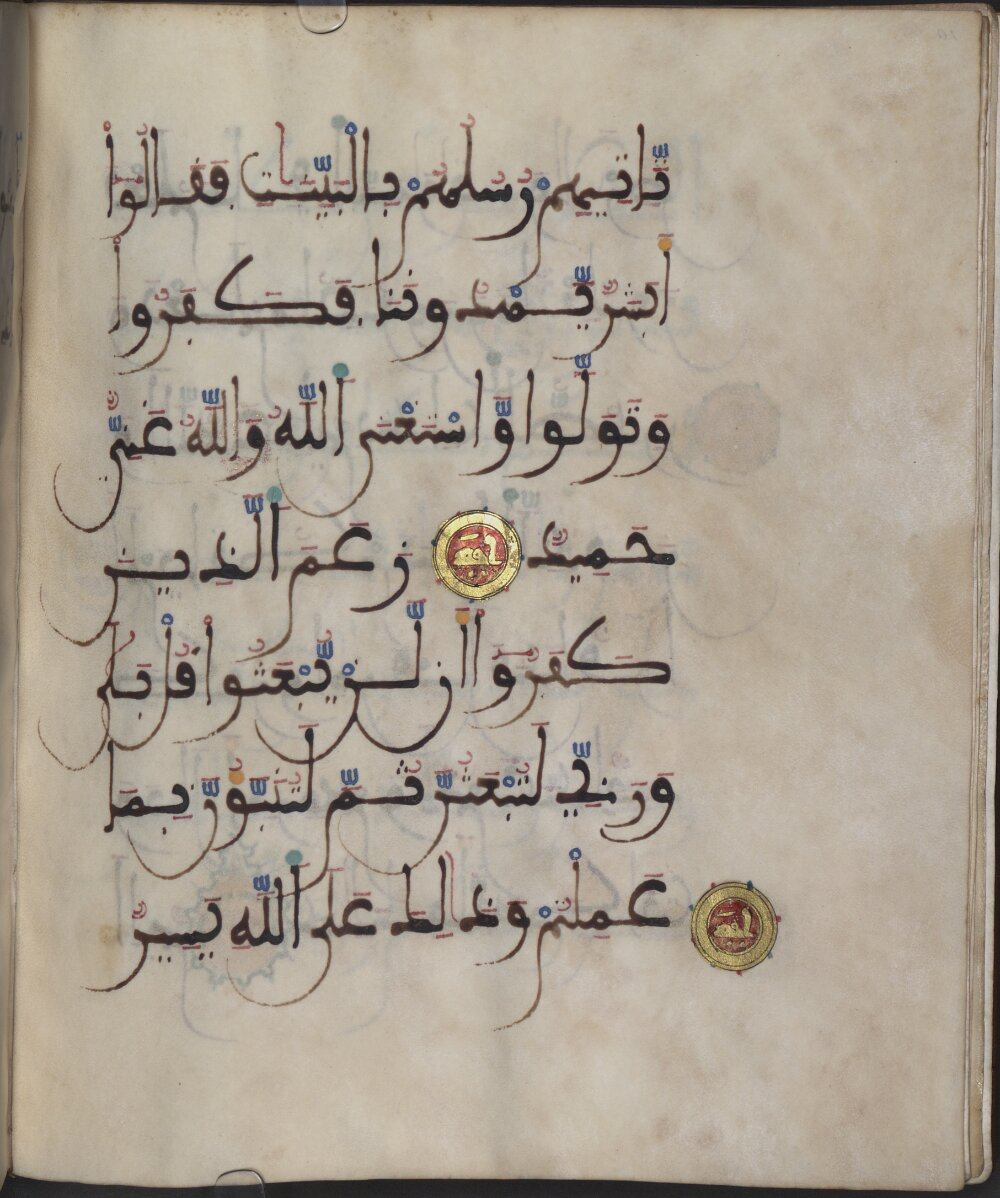 تَّاتِيهِمْ رُسُلُهُم بِالْبَيِّنَٰتِ فَقَالُوٓاْ
أَبَشَرٌ يَّهْدُونَنَا فَكَفَرُواْ
وَتَوَلَّواْ وَّاسْتَغْنَى اللَّهُ وَاللَّهُ غَنِيٌّ
حَمِيدٌ زَعَمَ الَّذِينَ
كَفَرُوٓاْ أَن لَّنْ يُّبْعَثُواْ قُلْ بَلَىٰ
وَرَبِّي لَتُبْعَثُنَّ ثُمَّ لَتُنَبَّؤُنَّ بِمَا
عَمِلْتُمْ وَذَٰلِكَ عَلَى اللَّهِ يَسِيرٌ